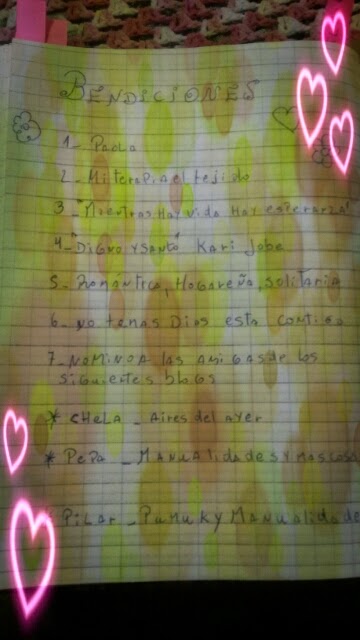 BENDICIONES
1_ Paola
2_ Mi terapia el tejido
3_ "Mientras Hay vida Hay esperanza"
4_ "DIGNO Y SANTO" Kari Jobe
5_ Romántica, Hogareña, solitaria
6_ NO temas Dios esta contigo
7_ NOMINOA las amigas de los
siguientes blogs
* CHELA _ Aires del ayer
* PEPA _ MANUALidades y mascosa
PILAR _ PUMUKY MANUALidade